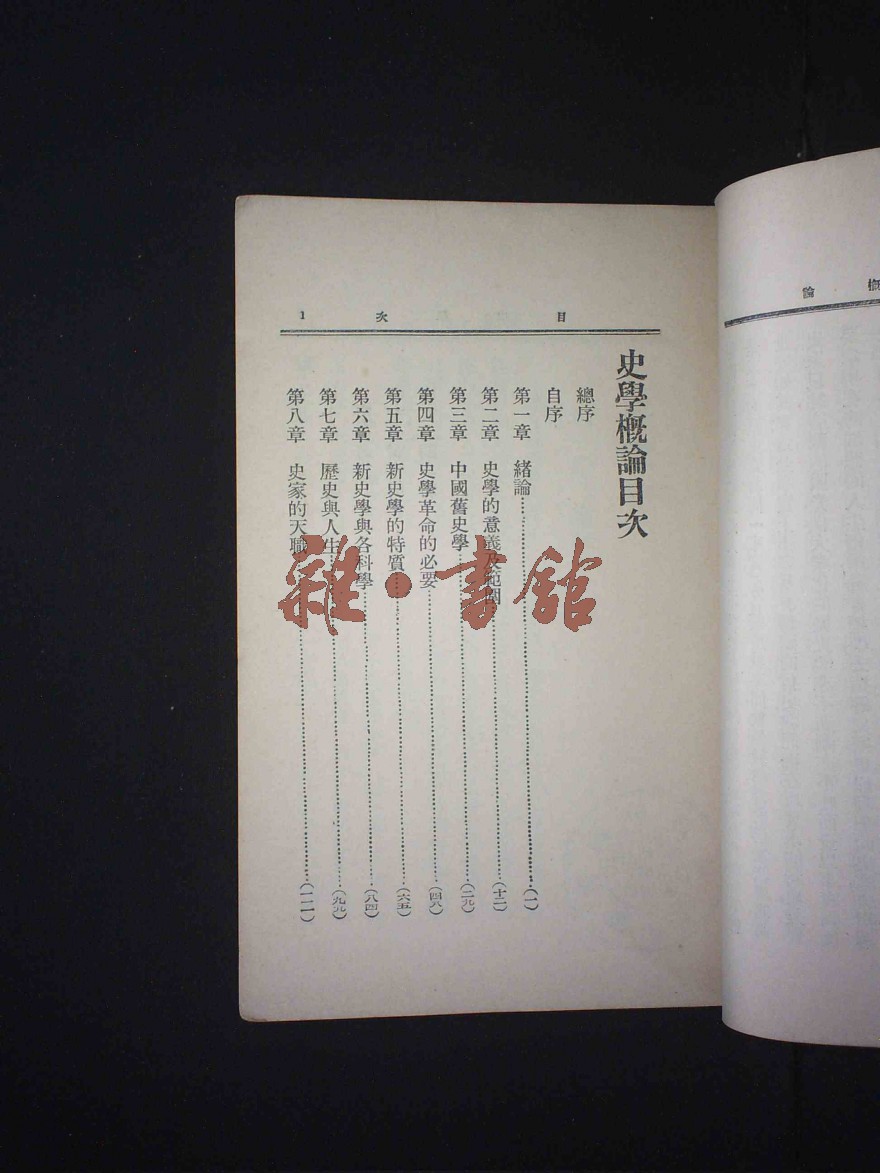 1 次 目
史學概論目次
總序
自序
第一章 緒論……(一)
第二章 史學的意義及範圍……(十二)
第三章 中國舊史學……(二九)
第四章 史學革命的必要……(四八)
第五章 新史學的特質……(六五)
第六章 新史學與各科學……(八四)
第七章 歷史與人生……(九九)
第八章 史家的天職……(一一一)
雜·書館
論 概